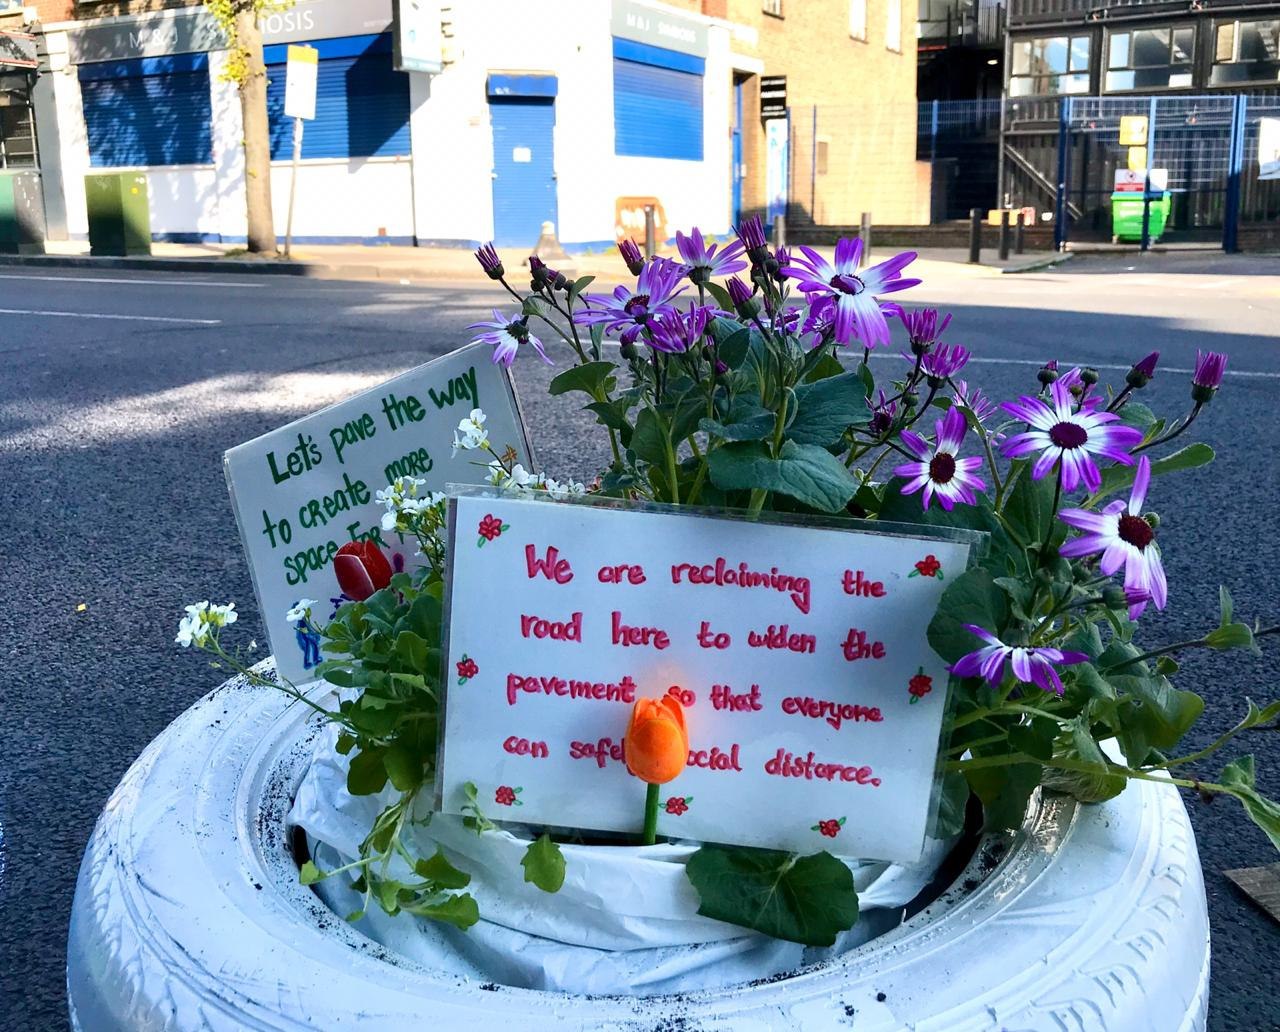 M & J
IOSIS
M & J SIMMONS
Let's pave the way
to create more
space For
We are reclaiming the
road here to widen the
pavement so that everyone
can social distance.